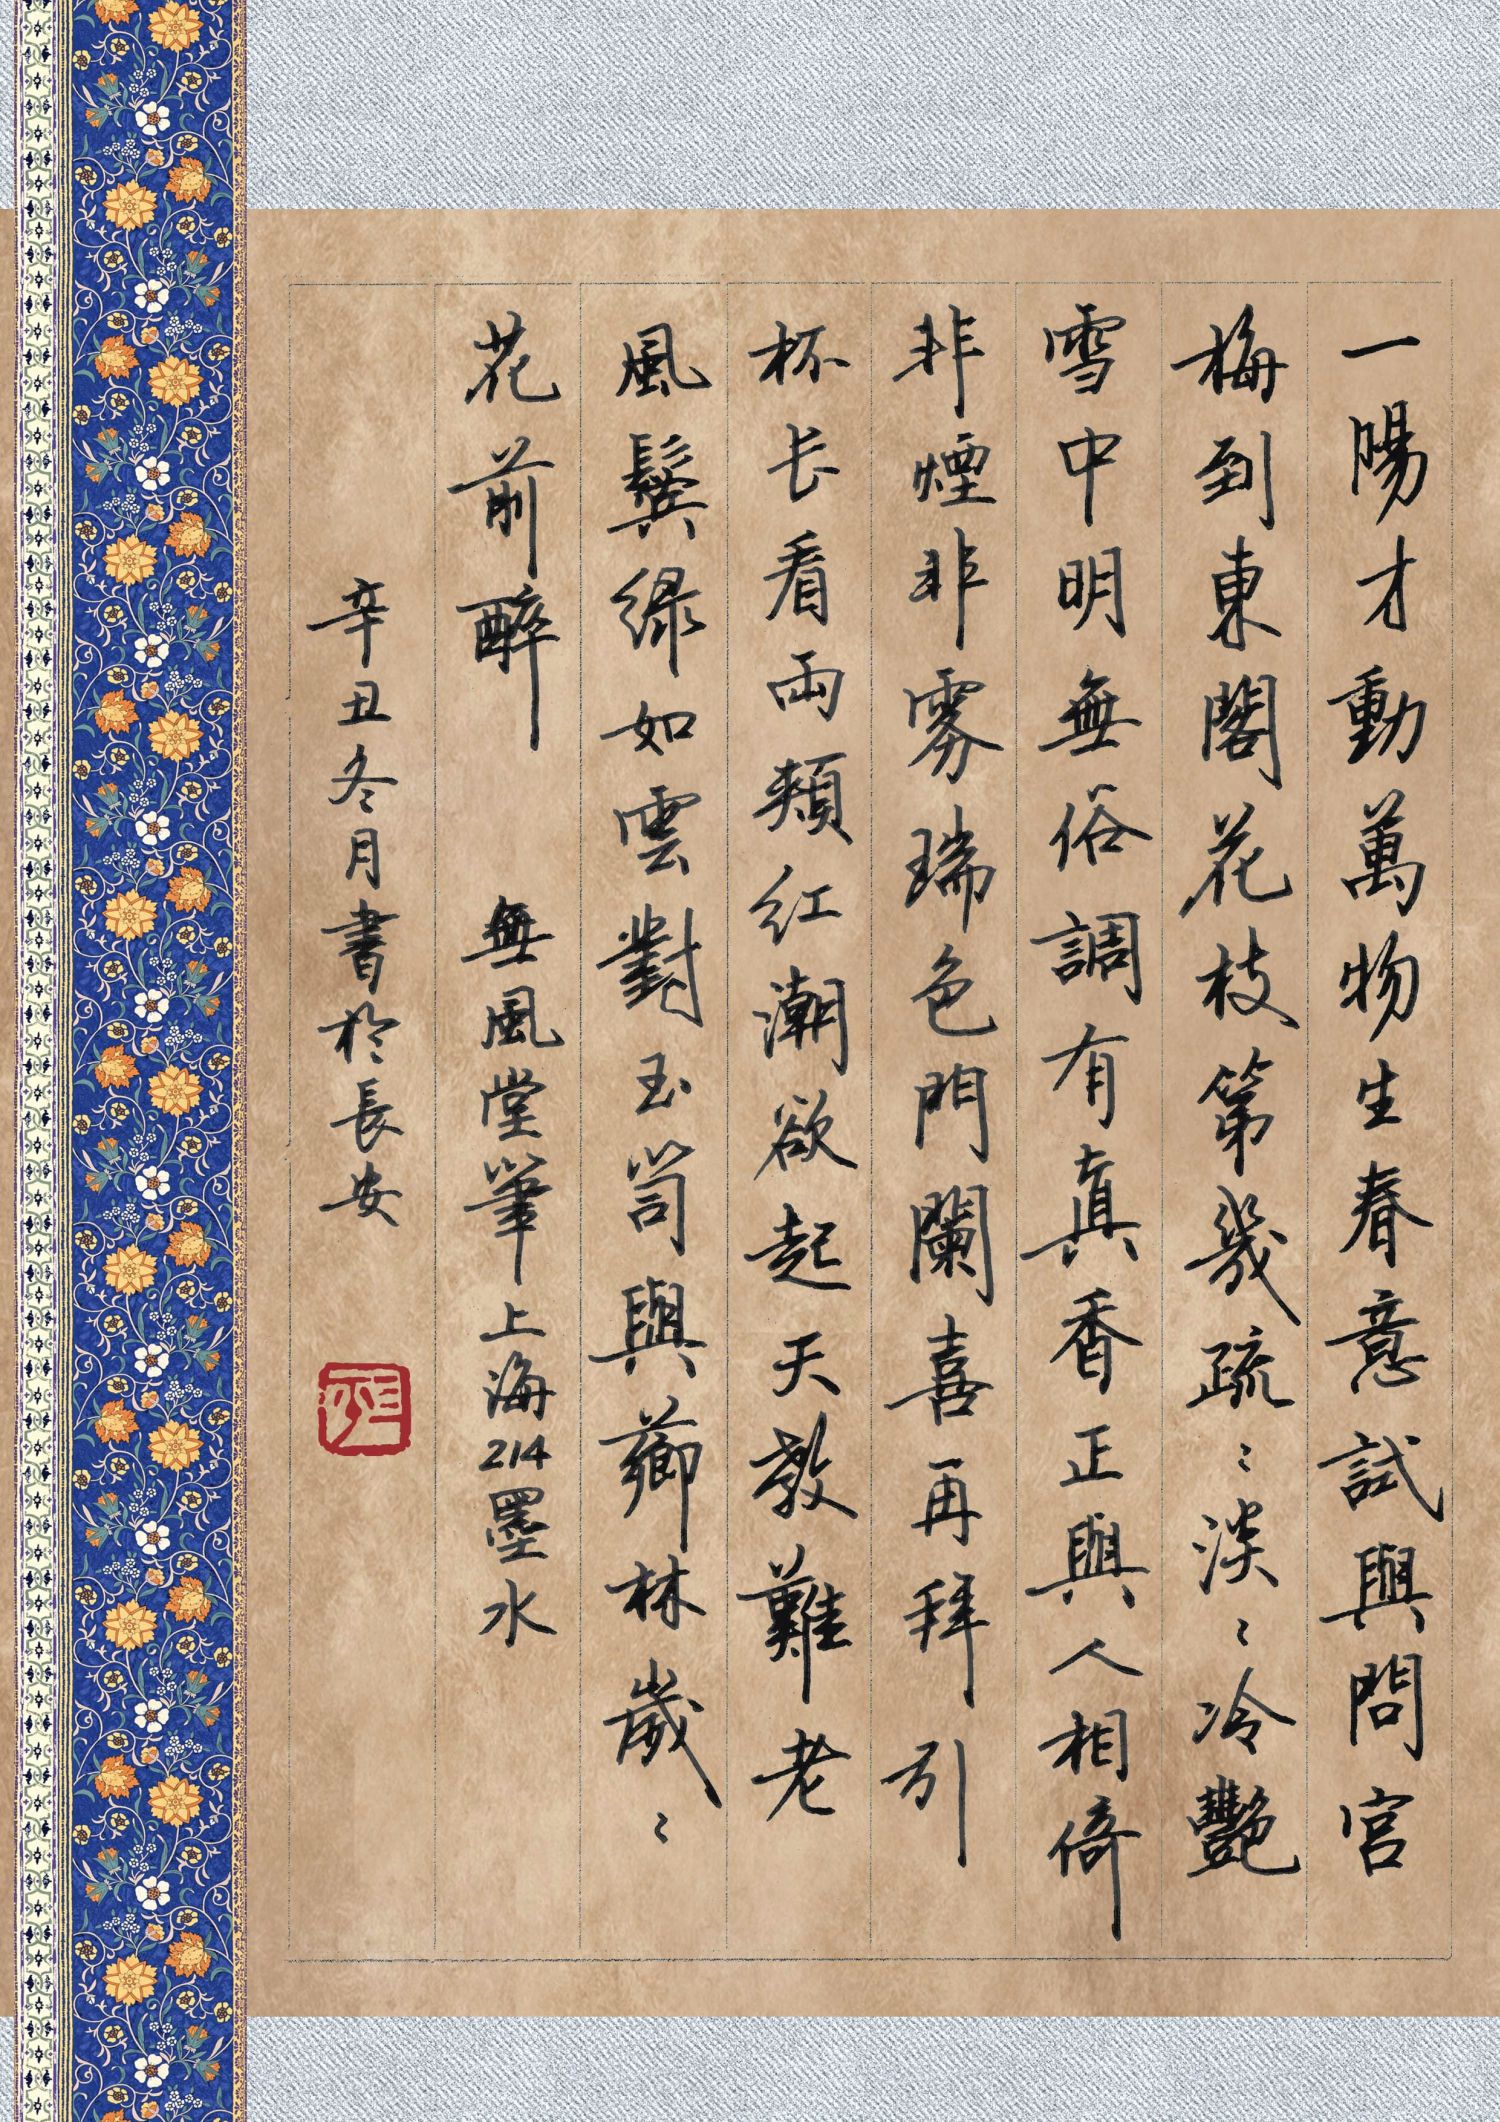 一陽才動萬物生春意試與問官
梅到東閣花枝第幾疏〻淡〻冷艷
雪中明無俗調有真香正與人相倚
非煙非雾瑞色門闌喜再拜引
杯长看两頰红潮欲起天教難老
風鬓绿如雲對玉笥與薌林歲〻
花前醉
無風堂筆上海214墨水
辛丑冬月書於長安